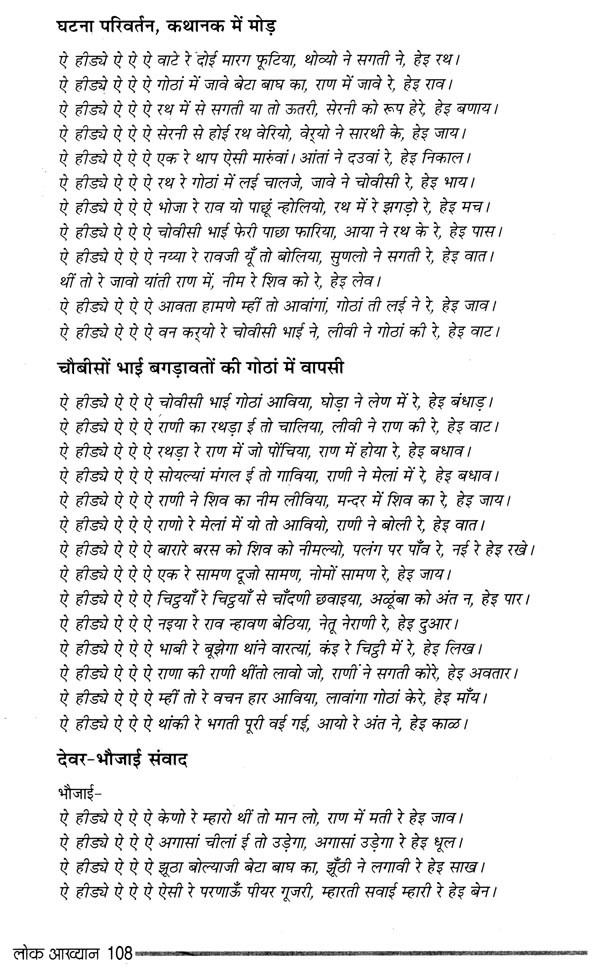 घटना परिवर्तन, कथानक में मोड़
ऐ हीड्ये ऐ ऐ ऐ वाटे रे दोई मारग फूटिया, थोव्यो ने सगती ने, हेइ रथ।
ऐ हीड्ये ऐ ऐ ऐ गोठां में जावे बेटा बाघ का, राण में जावे रे, हेइ राव।
ऐ हीड्ये ऐ ऐ ऐ रथ में से सगती या तो ऊतरी, सेरनी को रूप हेरे, हेइ बणाय।
ऐ हीड्ये ऐ ऐ ऐ सेरनी से होई रथ वेरियो, वेर्‌यो ने सारथी के, हेइ जाय।
ऐ हीड्ये ऐ ऐ ऐ एक रे थाप ऐसी मारुंवां। आंतां ने दउवां रे, हेइ निकाल।
ऐ हीड्ये ऐ ऐ ऐ रथ रे गोठां में लई चालजे, जावे ने चोवीसी रे, हेइ भाय।
ऐ हीड्ये ऐ ऐ ऐ भोजा रे राव यो पाछूं न्होलियो, रथ में रे झगड़ो रे, हेइ मच।
ऐ हीड्ये ऐ ऐ ऐ चोवीसी भाई फेरी पाछा फारिया, आया ने रथ के रे, हेइ पास।
ऐ हीड्ये ऐ ऐ ऐ नय्या रे रावजी यूँ तो बोलिया, सुणलो ने सगती रे, हेइ वात।
थीं तो रे जावो यांती राण में, नीम रे शिव को रे, हेइ लेव।
ऐ हीड्ये ऐ ऐ ऐ आवता हामणे म्हीं तो आवांगां, गोठां ती लई ने रे, हेइ जाव।
ऐ हीड्ये ऐ ऐ ऐ वन कर्‌यो रे चोवीसी भाई ने, लीवी ने गोठां की रे, हेइ वाट।
चौबीसों भाई बगड़ावतों की गोठां में वापसी
ऐ हीड्ये ऐ ऐ ऐ चोवीसी भाई गोठां आविया, घोड़ा ने लेण में रे, हेइ बंधाड़।
ऐ हीड्ये ऐ ऐ ऐ राणी का रथड़ा ई तो चालिया, लीवी ने राण की रे, हेइ वाट।
ऐ हीड्ये ऐ ऐ ऐ रथड़ा रे राण में जो पोंचिया, राण में होया रे, हेइ बधाव।
ऐ हीड्ये ऐ ऐ ऐ सोयल्यां मंगल ई तो गाविया, राणी ने मेलां में रे, हेइ बधाव।
ऐ हीड्ये ऐ ऐ ऐ राणी ने शिव का नीम लीविया, मन्दर में शिव का रे, हेइ जाय।
ऐ हीड्ये ऐ ऐ ऐ राणो रे मेलां में यो तो आवियो, राणी ने बोली रे, हेइ वात।
ऐ हीड्ये ऐ ऐ ऐ बारारे बरस को शिव को नीमल्यो, पलंग पर पाँव रे, नई रे हेइ रखे।
ऐ हीड्ये ऐ ऐ ऐ एक रे सामण दूजो सामण, नोमों सामण रे, हेइ जाय।
ऐ हीड्ये ऐ ऐ ऐ चिट्ठयाँ रे चिट्ठयाँ से चाँदणी छवाइया, अळूंबा को अंत न, हेइ पार।
ऐ हीड्ये ऐ ऐ ऐ नइया रे राव न्हावण बेठिया, नेतू नेराणी रे, हेइ दुआर।
ऐ हीड्ये ऐ ऐ ऐ भाबी रे बूझेगा थांने वारत्यां, कंइ रे चिट्ठी में रे, हेइ लिख।
ऐ हीड्ये ऐ ऐ ऐ राणा की राणी थींतो लावो जो, राणीं ने सगती कोरे, हेइ अवतार।
ऐ हीड्ये ऐ ऐ ऐ म्हीं तो रे वचन हार आविया, लावांगा गोठां केरे, हेइ माँय।
ऐ हीड्ये ऐ ऐ ऐ थांकी रे भगती पूरी वई गई, आयो रे अंत ने, हेइ काळ।
देवर-भौजाई संवाद
भौजाई-
ऐ हीड्ये ऐ ऐ ऐ केणो रे म्हारो थीं तो मान लो, राण में मती रे हेइ जाव।
ऐ हीड्ये ऐ ऐ ऐ अगासां चीलां ई तो उड़ेगा, अगासां उड़ेगा रे हेइ धूल।
ऐ हीड्ये ऐ ऐ ऐ झूठा बोल्याजी बेटा बाघ का, झूँठी ने लगावी रे हेइ साख।
ऐ हीड्ये ऐ ऐ ऐ ऐसी रे परणाऊँ पीयर गूजरी, म्हारती सवाई म्हारी रे हेइ बेन।
लोक आख्यान 108